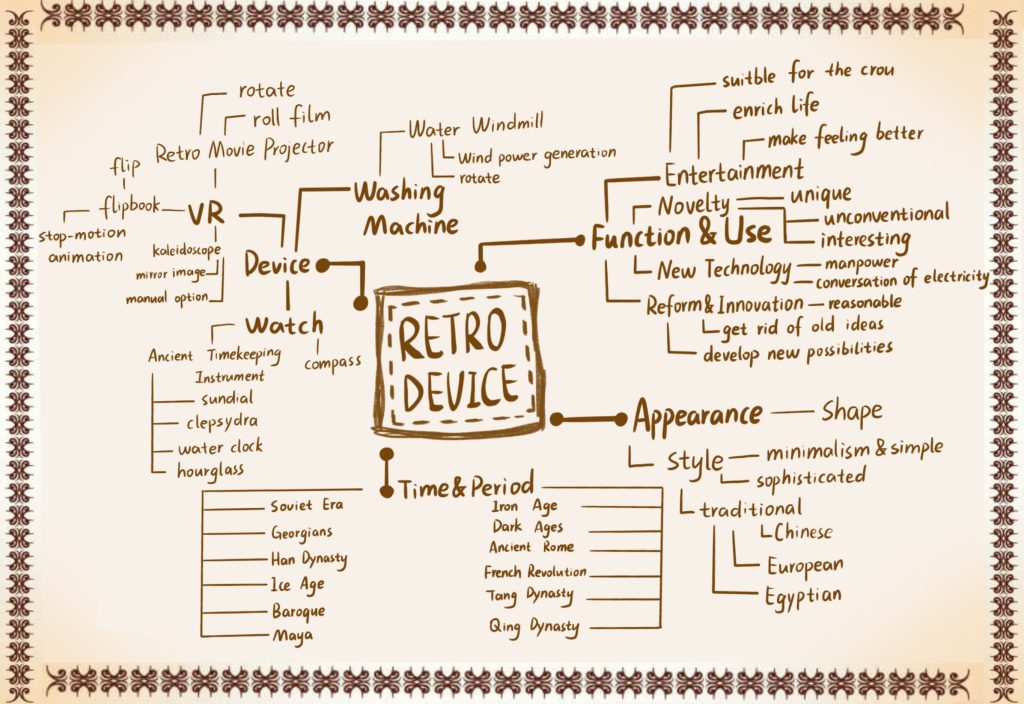 rotate
roll film
Retro Movie Projector
flip
flipbook
stop-motion
animation
VR
kaleidoscope
mirror image
manual option
Device
Washing
Machine
Water Windmill
Wind power generation
rotate
Watch
Ancient Timekeeping
Instrument
sundial
clepsydra
water clock
hourglass
compass
RETRO
DEVICE
suitble for the crou
enrich life
make feeling better
Entertainment
Novelty
unique
unconventional
interesting
Function & Use
New Technology
manpower
conversation of electricity
Reform & Innovation
reasonable
get rid of old ideas
develop new possibilities
Appearance
Shape
Style
minimalism & simple
sophisticated
traditional
Chinese
European
Egyptian
Time & Period
Soviet Era
Georgians
Han Dynasty
Ice Age
Baroque
Maya
Iron Age
Dark Ages
Ancient Rome
French Revolution
Tang Dynasty
Qing Dynasty